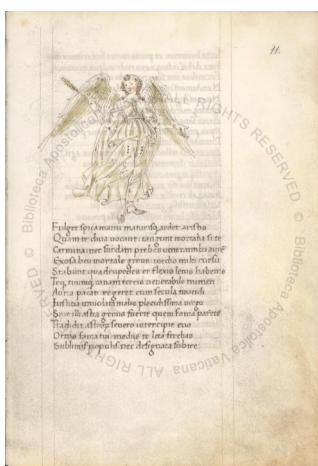 11.
Fulget spica manu maturisq; ardet aristis
Quam te diua uocant tangunt mortalia si te
Carmina nec surdam prebes uenerantibus aurē
Exosa heu mortale genus medio mihi cursu
Stabunt quadrupedes et flexis letus habenis
Teq; tuumq; canam terris uenerabile numen
Aurea pacati regeres cum secula mundi
Iustitia inuiolata malis placidissima uirgo
Siue illa astrei genus fueris quem fama parentē
Tradidit astroꝝ seu uero intercipit euo
Ortus fama tui mediis te leta ferebas
Sublimis populis nec dedignata subire
© Biblioteca Apostolica Vaticana ALL RIGHTS RESERVED